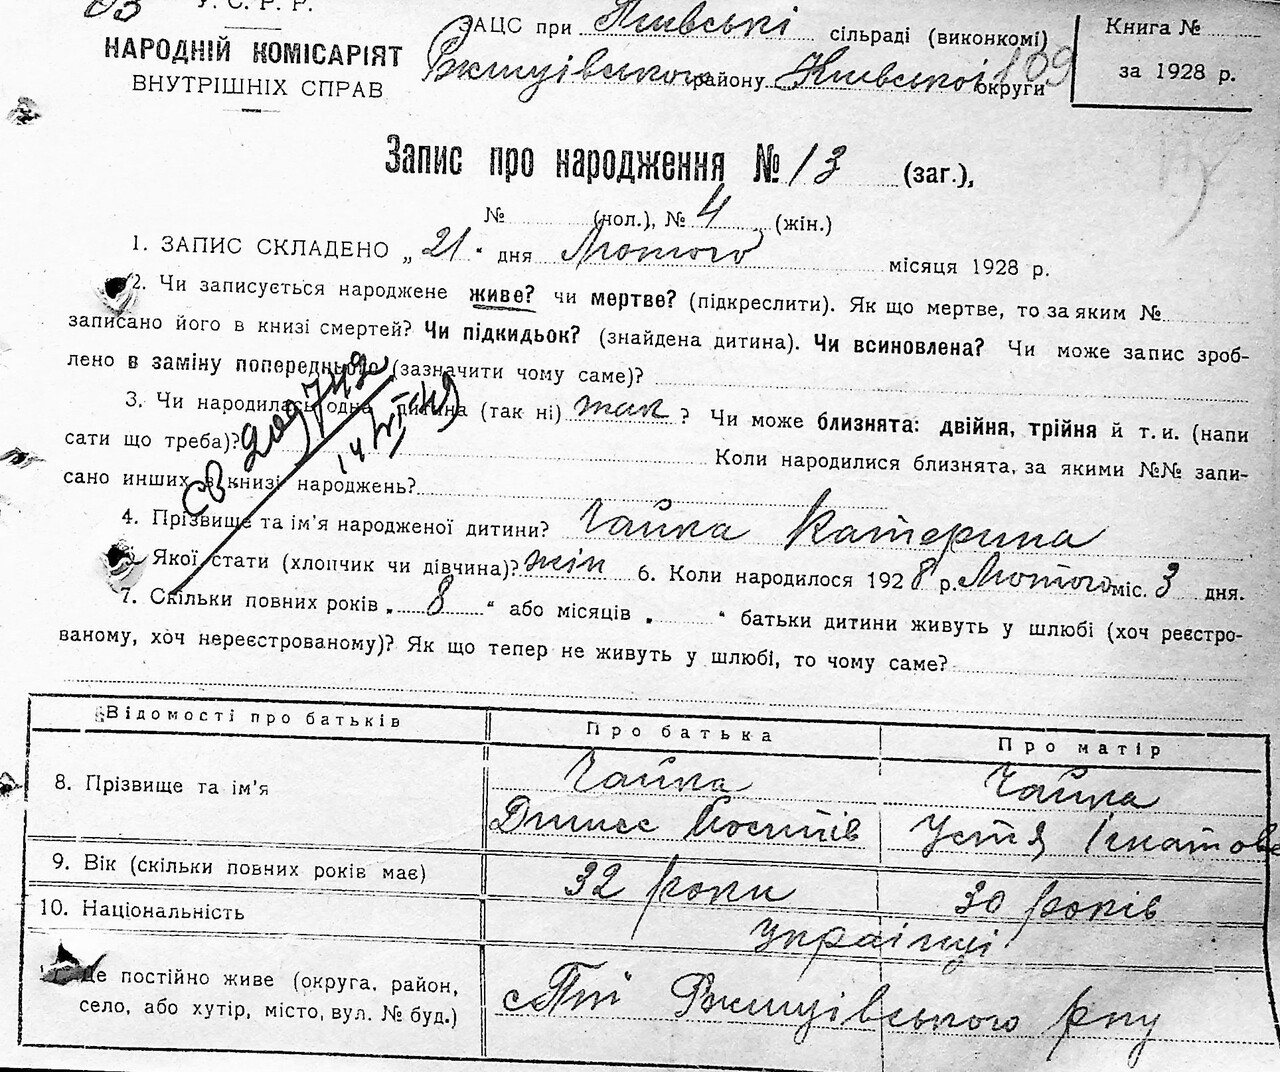 У. С. Р. Р.
НАРОДНІЙ КОМІСАРІЯТ
ВНУТРІШНІХ СПРАВ
ЗАЦС при сільраді (виконкомі)
Ржищівського району Київської округи 139
Книга №
за 1928 р.
Запис про народження № 13 (заг.),
№ (чол.), № 4 (жін.)
1. ЗАПИС СКЛАДЕНО „ 21 “ дня Лютого місяця 1928 р.
2. Чи записується народжене живе? чи мертве? (підкреслити). Як що мертве, то за яким №
записано його в книзі смертей? Чи підкидьок? (знайдена дитина). Чи всиновлена? Чи може запис зроб-
лено в заміну попереднього (зазначити чому саме)?
3. Чи народилась одна дитина (так ні) так ? Чи може близнята: двійня, трійня й т. и. (напи
сати що треба)? Коли народилися близнята, за якими №№ запи-
сано инших в книзі народжень?
СВ 209742
4. Прізвище та ім’я народженої дитини? Чайка Катерина
Якої стати (хлопчик чи дівчина)? жін 6. Коли народилося 192 8 р. Лютого міс. 3 дня.
7. Скільки повних років „ 8 “ або місяців „ “ батьки дитини живуть у шлюбі (хоч реєстро-
ваному, хоч нереєстрованому)? Як що тепер не живуть у шлюбі, то чому саме?
Відомості про батьків Про батька Про матір
8. Прізвище та ім’я Чайка Чайка
Устя Ігнатова
9. Вік (скільки повних років має) 32 роки 30 років
10. Національність Українці
Де постійно живе (округа, район,
село, або хутір, місто, вул. № буд.) Ржищівського рну